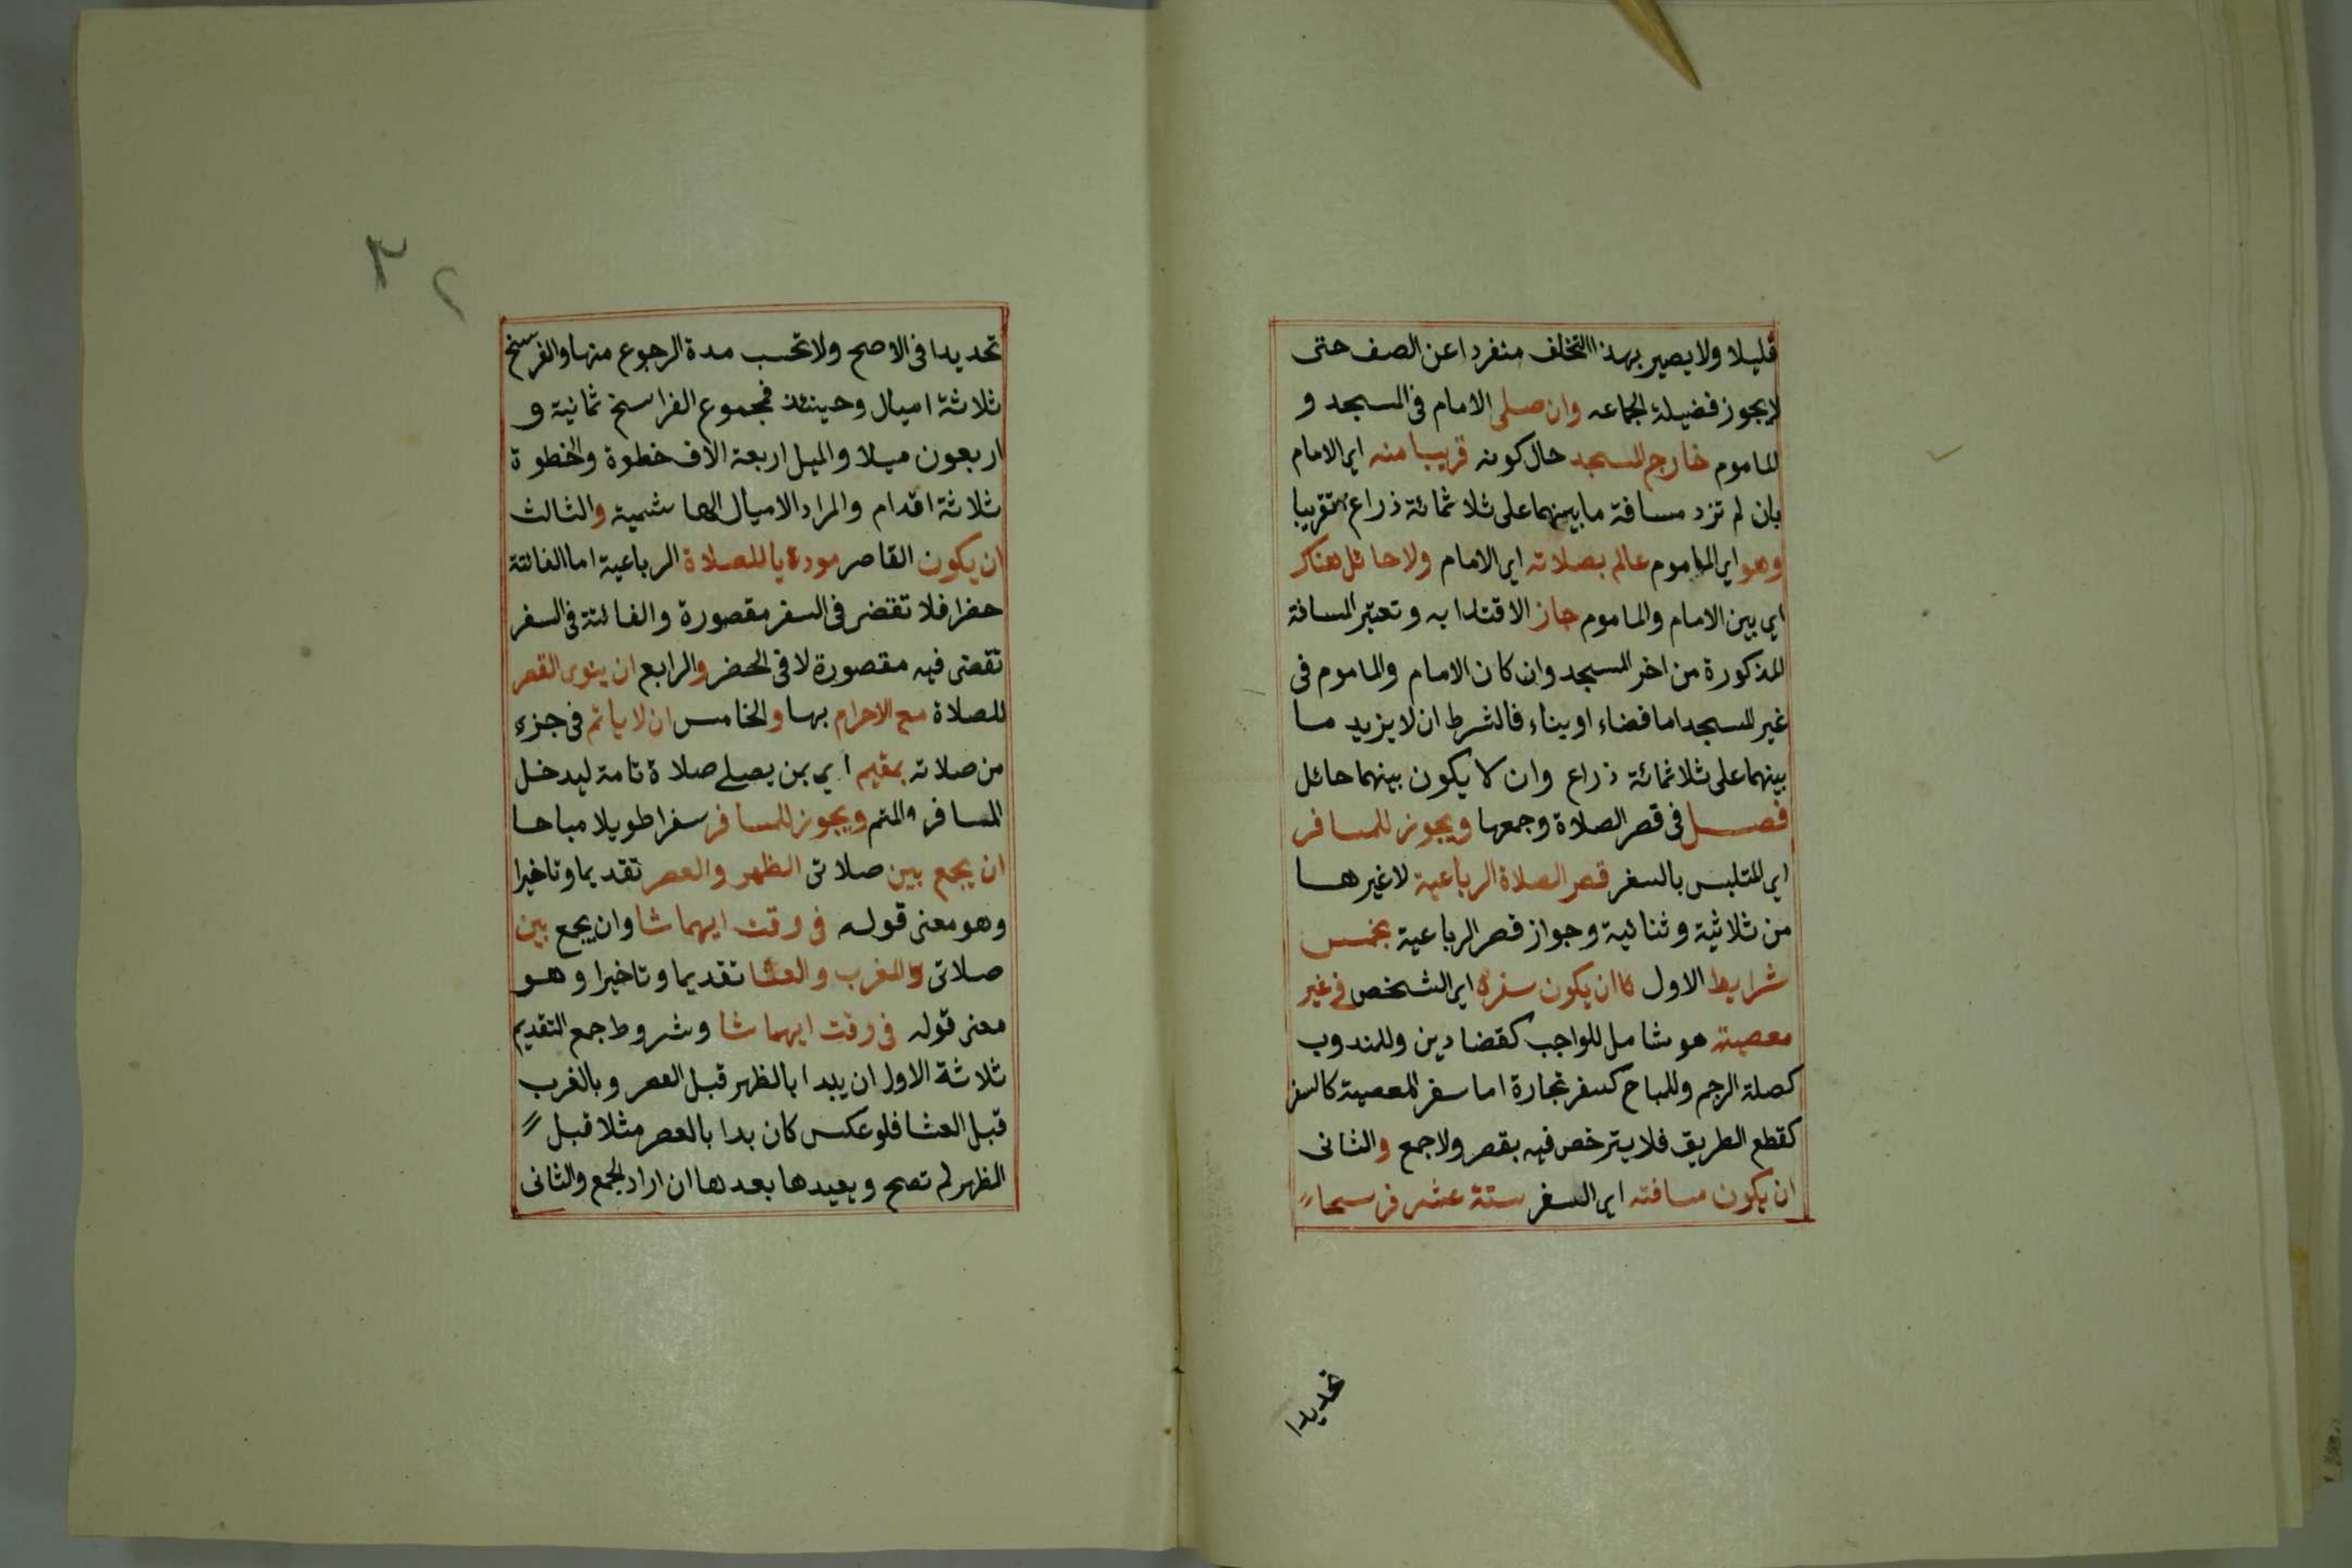 قليلا ولا يصير بهذا التخلف منفردا عن الصف حتى
لا يجوز فضيلة الجماعه وان صلى الامام فى المسجد و
الماموم خارج المسجد حال كونه قريبا منه اي الامام
بان لم تزد مسافة ما بينهما على ثلاثمائة ذراع تقريبا
وهو اي الماموم عالم بصلاته اي الامام ولا حائل هناك
اي بين الامام والماموم جاز الاقتدا به وتعتبر المسافة
المذكورة من اخر المسجد وان كان الامام والماموم فى
غير المسجد اما فضاء او بناء فالشرط ان لا يزيد ما
بينهما على ثلاثمائة ذراع وان لا يكون بينهما حائل
فصل فى قصر الصلاة وجمعها ويجوز للمسافر
اي المتلبس بالسفر قصر الصلاة الرباعية لا غيرها
من ثلاثية وثنائية وجواز قصر الرباعية بخمس
شرايط الاول ان يكون سفره اي الشخص فى غير
معصية هو شامل للواجب كقضا دين وللمندوب
كصلة الرحم وللمباح كسفر تجارة اما سفر المعصية كالسفر
كقطع الطريق فلا يترخص فيه بقصر ولا جمع والثانى
ان يكون مسافته اي السفر ستة عشر فرسخا
تحديدا
٣٢
تحديدا فى الاصح ولا تحسب مدة الرجوع منها والفرسخ
ثلاثة اميال وحينئذ فمجموع الفراسخ ثمانية و
اربعون ميلا والميل اربعة الاف خطوة والخطوة
ثلاثة اقدام والمراد الاميال الهاشمية والثالث
ان يكون القاصر موديا للصلاة الرباعية اما الفائتة
حضرا فلا تقضى فى السفر مقصورة والفائتة فى السفر
تقضى فيه مقصورة لا فى الحضر والرابع ان ينوى القصر
للصلاة مع الاحرام بها والخامس ان لا ياتم فى جزء
من صلاته بمقيم اي بمن يصلي صلاة تامة ليدخل
المسافر المتم ويجوز للمسافر سفرا طويلا مباحا
ان يجمع بين صلاتى الظهر والعصر تقديما وتاخيرا
وهو معنى قوله فى وقت ايهما شا وان يجمع بين
صلاتى المغرب والعشا تقديما وتاخيرا وهو
معنى قوله فى وقت ايهما شا وشروط جمع التقديم
ثلاثة الاول ان يبدا بالظهر قبل العصر وبالمغرب
قبل العشا فلو عكس كان بدا بالعصر مثلا قبل
الظهر لم تصح ويعيدها بعدها ان اراد الجمع والثانى